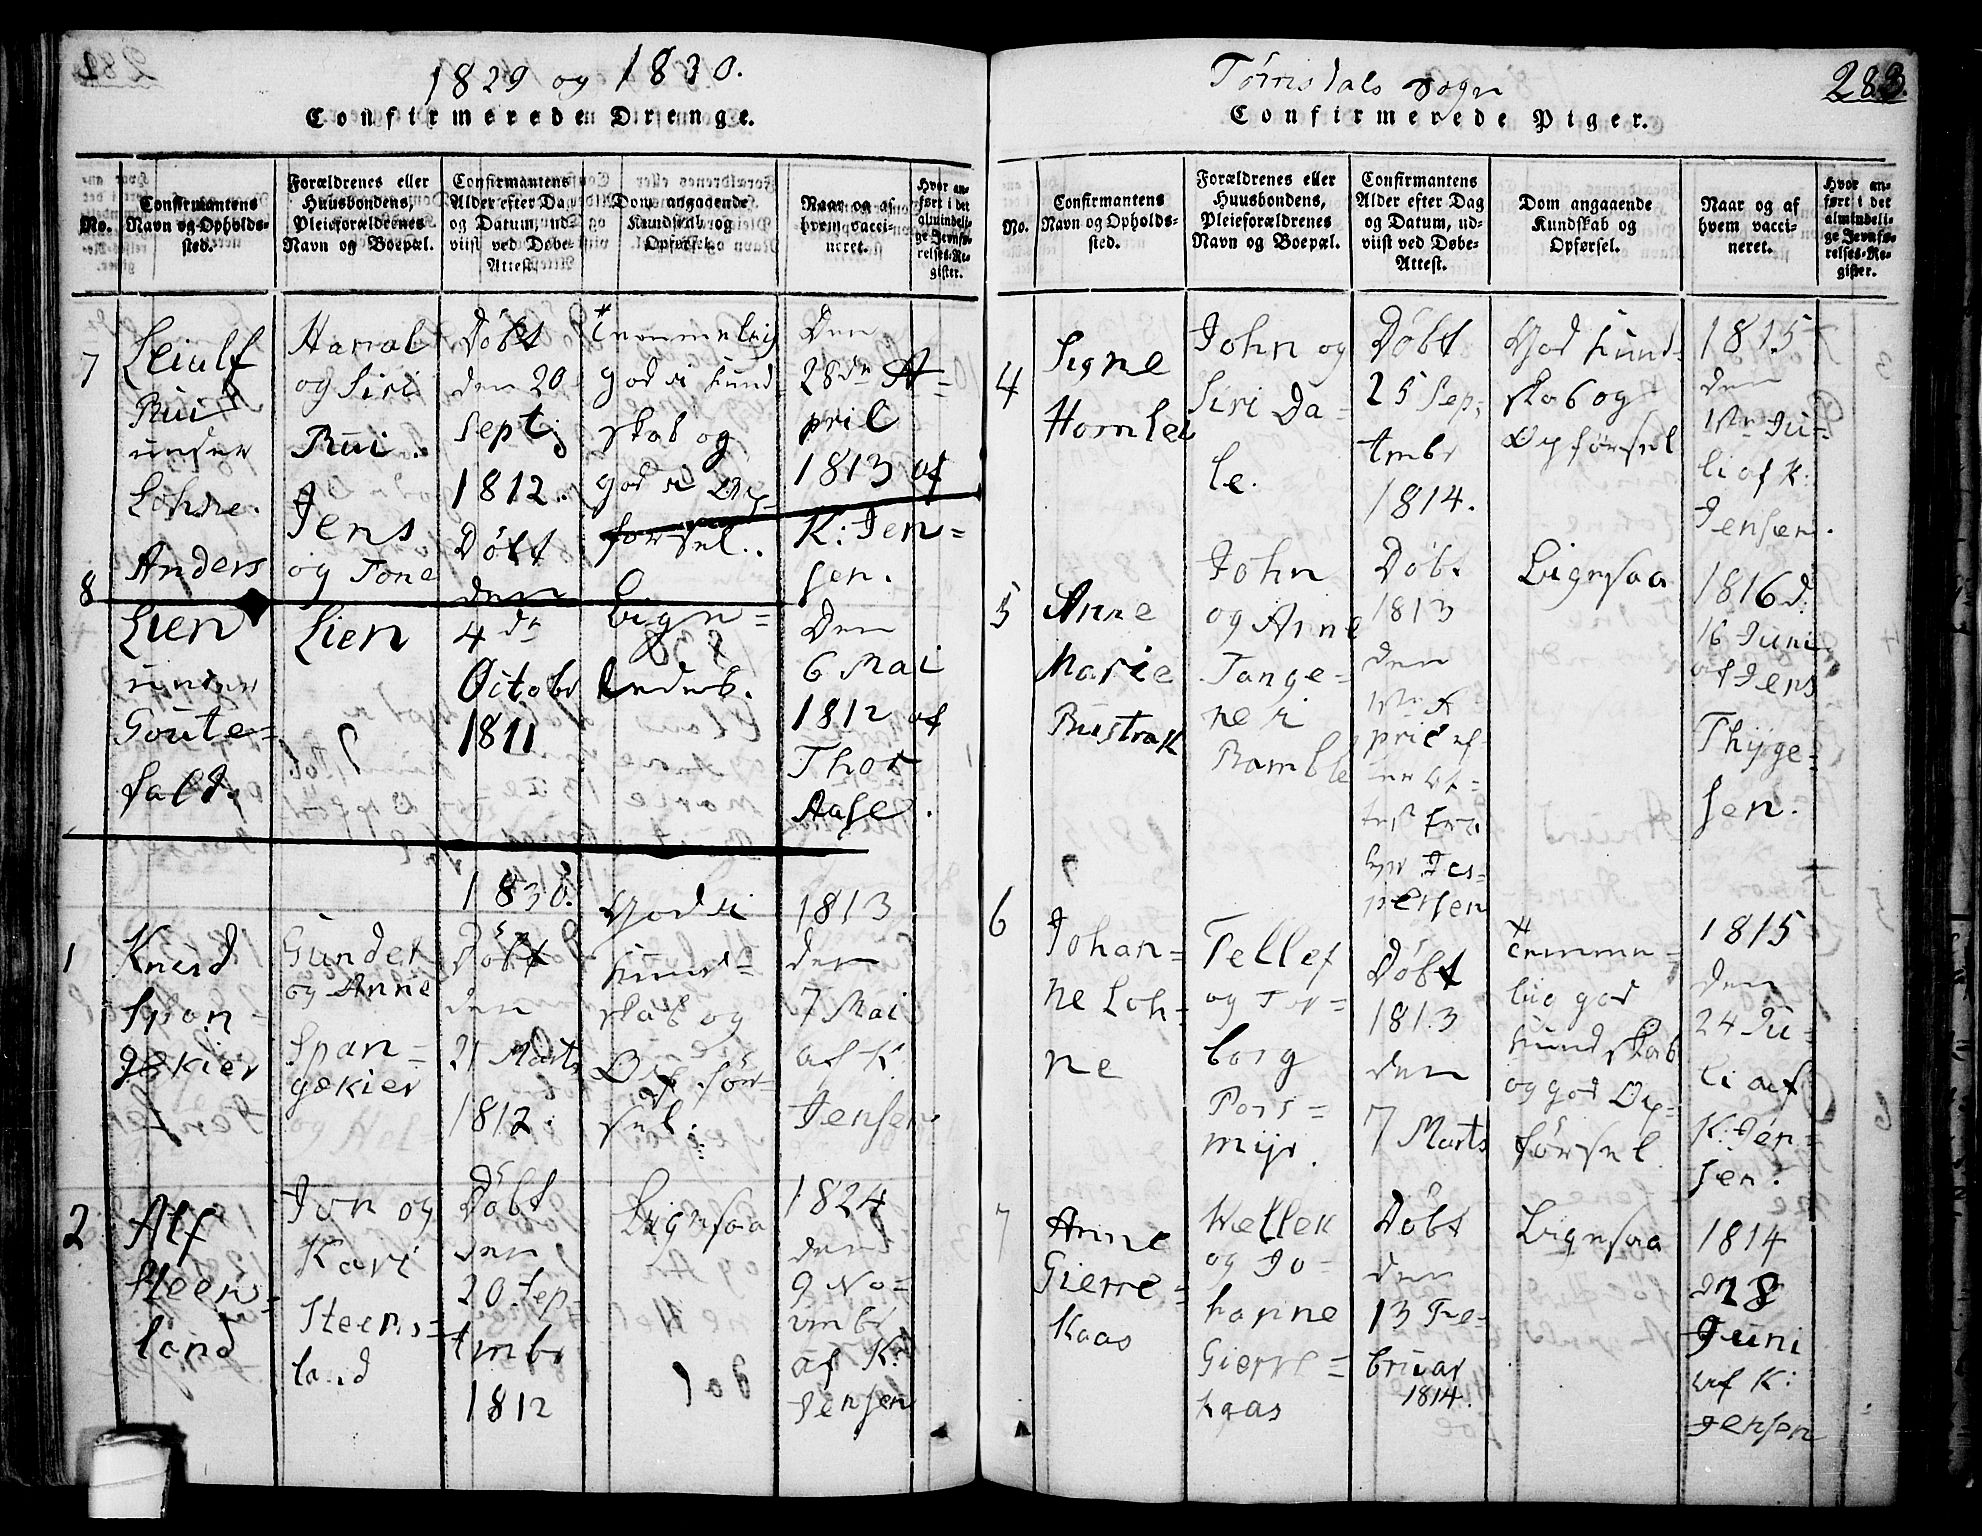 1829 og 1830.
Confirmerede Drenge.
No.
Confirmantens
Navn og Opholds-
sted.
Forældrenes eller
Huusbondens,
Pleieforældrenes
Navn og Boepæl.
Confirmantens
Alder efter Dag
og Datum, ud-
viist ved Døbe-
Attest.
Dom angaaende
Kundskab og
Opførsel.
Naar og af
hvem vacci-
neret.
Hvor an-
ført i det
almindeli-
ge Jevnfø-
relses-Re-
gister.
7
Leiulf
Rui
under
Lohne.
Haral
og Siri
Rui.
Döbt
den 20
Sept;
1812.
Temmelig
god Kund
skab og
god Op-
forsel.
Den
28de A-
pril
1813 af
K: Jen=
sen.
8
Anders
Lien
under
Goute-
fald.
Jens
og Tone
Lien
Döbt
den
4de
Octobr
1811
Lign=
ledes.
Den
6 Mai
1812 af
Thor
Aase.
1830.
1
Knud
Span=
gekier
Gunder
og Anne
Span=
gekier
Döbt
den
21 Marts
1812.
God
Kund=
skab og
Opför-
sel.
1813
den
7 Mai
af K
Jensen
2
Alf
Steens=
land
Jon og
Kari
Steens=
land
Döbt
den
20 Sep=
tembr
1812
Ligesaa
1824
den
9 No=
vembr
af K:
Jensen
Törrisdals Sogn
283.
Confirmerede Piger.
No.
Confirmantens
Navn og Opholds-
sted.
Forældrenes eller
Huusbondens,
Pleieforældrenes
Navn og Boepæl.
Confirmantens
Alder efter Dag
og Datum, ud-
viist ved Døbe-
Attest.
Dom angaaende
Kundskab og
Opførsel.
Naar og af
hvem vacci-
neret.
Hvor an-
ført i det
almindeli-
ge Jevnfø-
relses-Re-
gister.
4
Signe
Homlei
John og
Siri Da-
le.
Döbt
25 Sep;
tembr
1814.
God Kund-
skab og
Opförsel
1815
den
1ste Ju-
li af K:
Jensen.
5
Anne
Marie
Bustrak
John
og Anne
Tange=
ne i
Bamble
Döbt
1813
den
1ste A
pril ef-
ter At-
test fra
Hr Jes-
persen
Ligesaa
1816 d.
16 Juni
af Jens
Thyge=
sen.
6
Johan=
ne Loh=
ne
Tellef
og Tor=
borg
Pors=
myr.
Döbt
1813
den
7 Marts
Temme=
lig god
Kundskab
og god Op=
försel
1815
den
24 Ju=
li af
K: Jen=
sen.
7
Anne
Gierre=
Kaas
Kittel
og Jo=
hanne
Gierre=
kaas
Döbt
den
13 Fe=
bruar
1814.
Ligesaa
1814
d. 28
Juni
af K:
Jensen